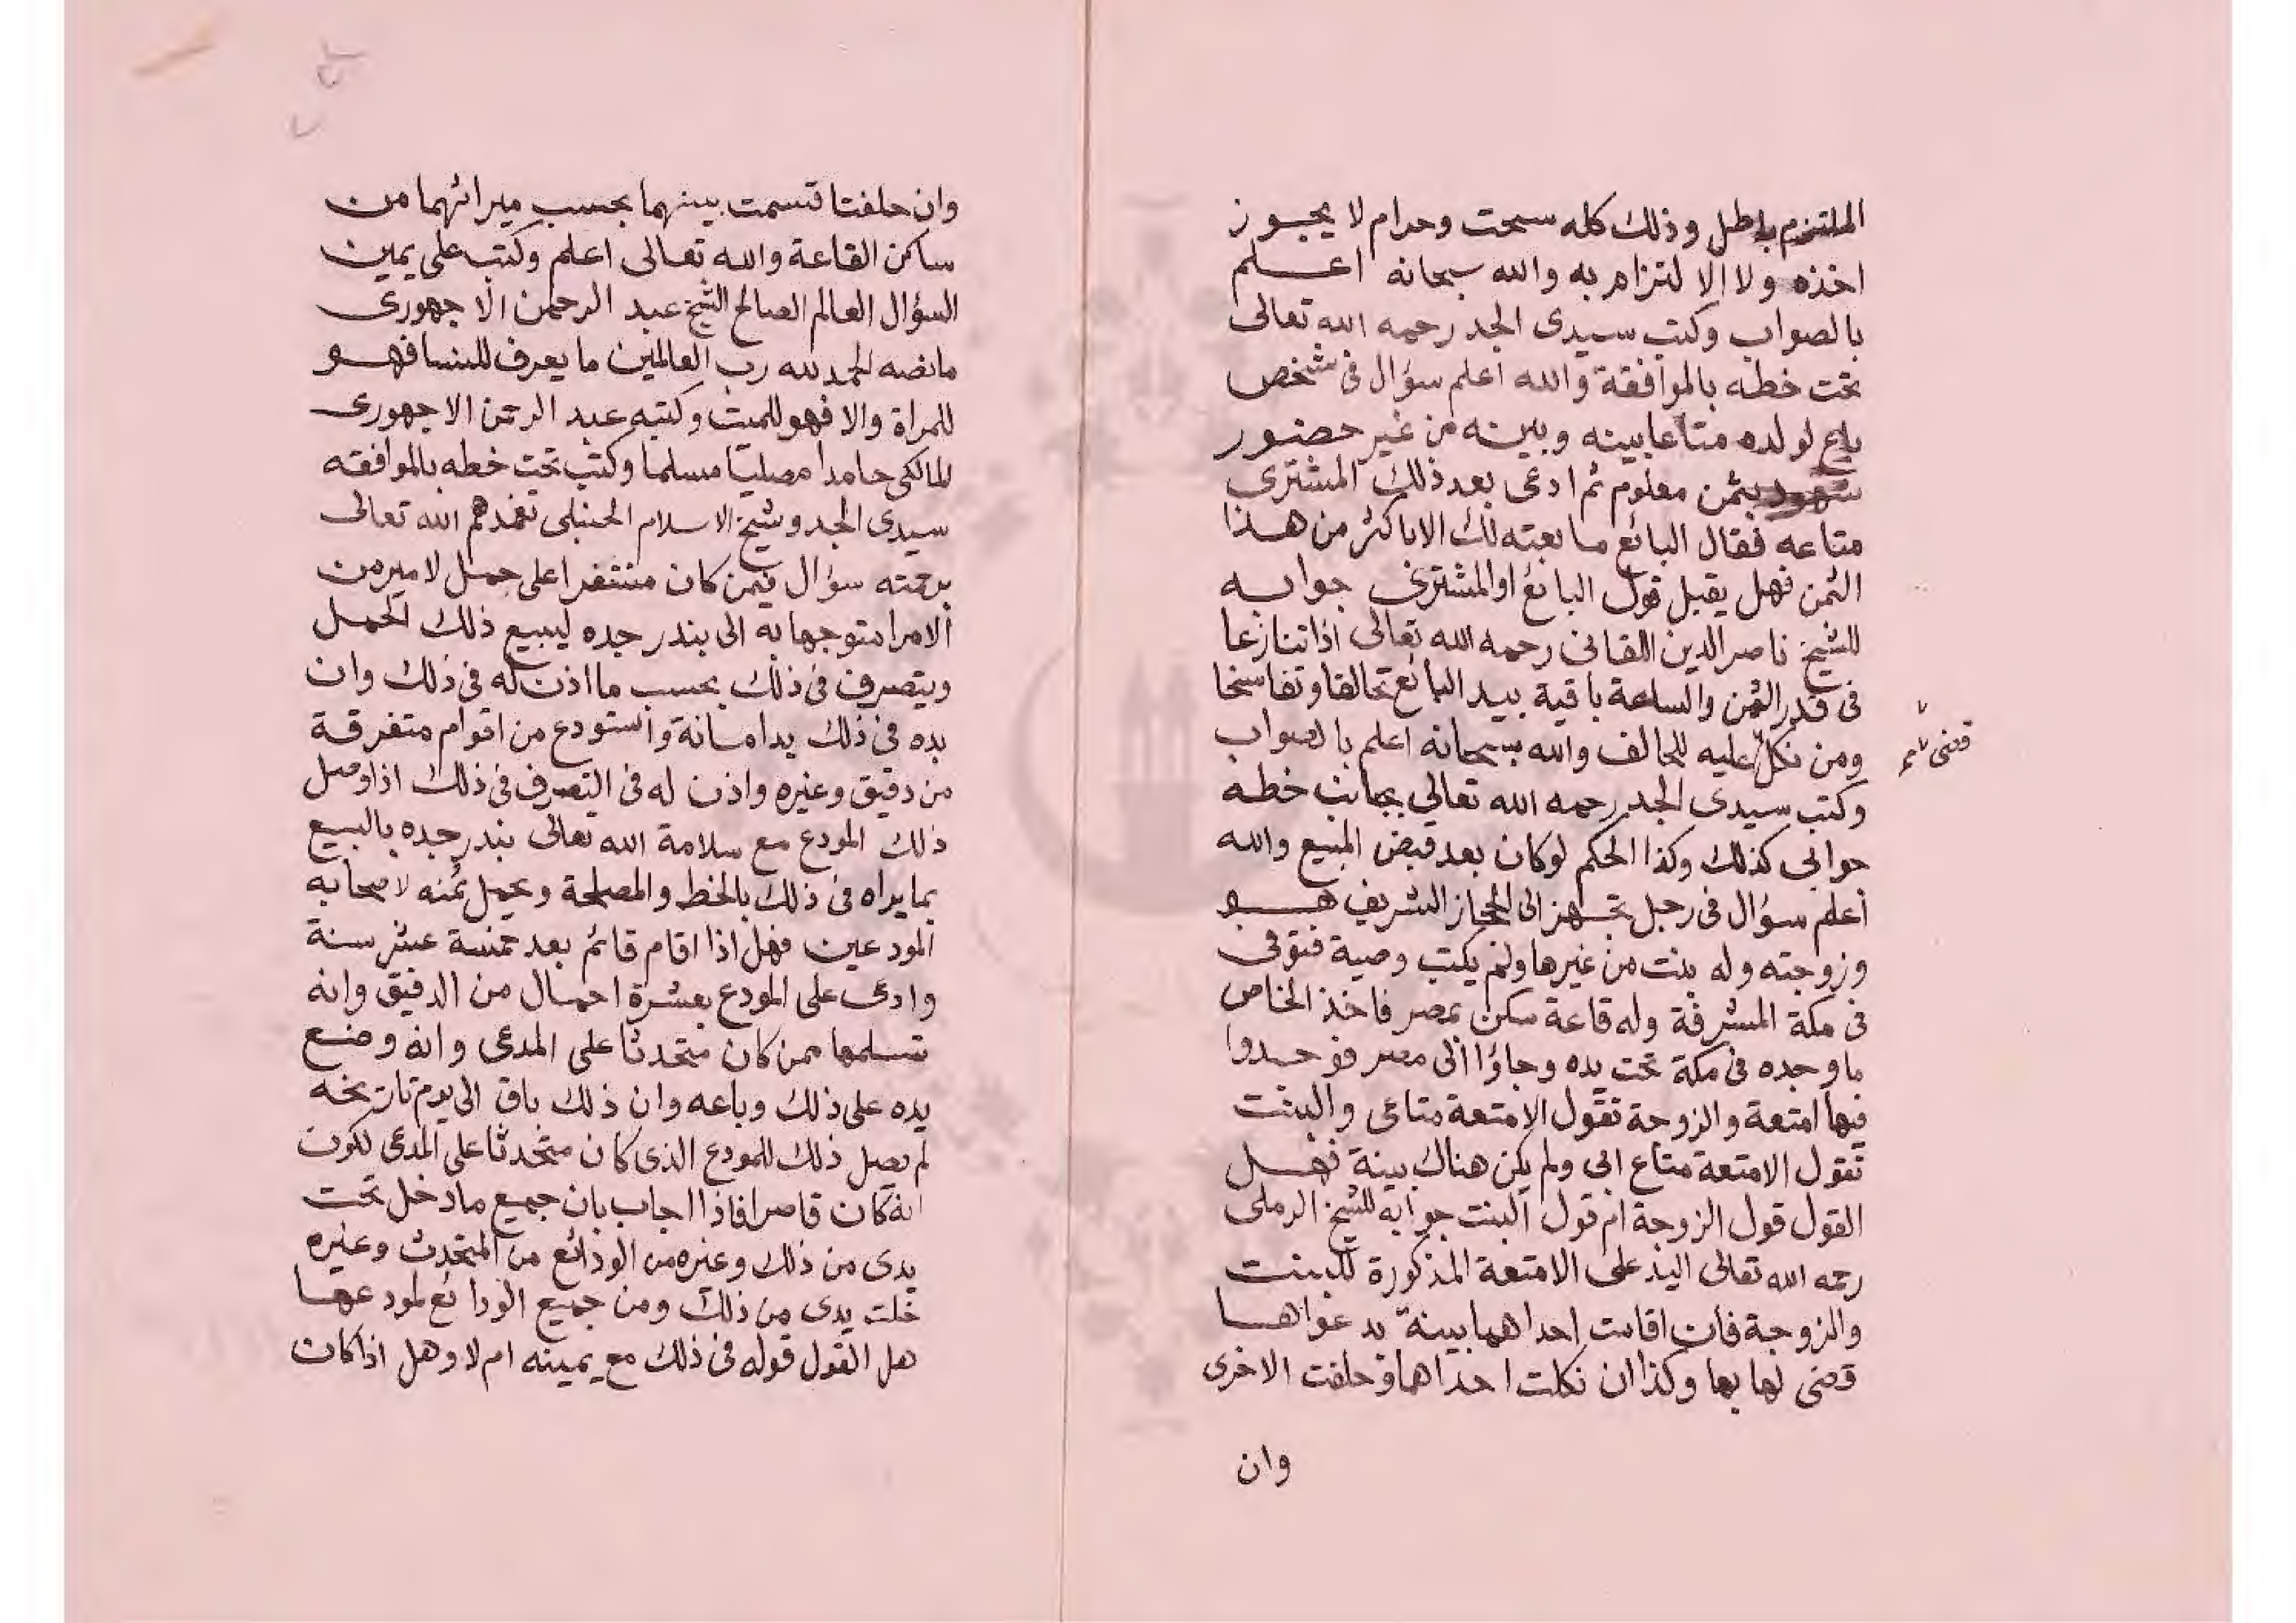 الملتزم باطل وذلك كله سحت وحرام لا يجوز
اخذه ولا الا لتزام به والله سبحانه اعلم
بالصواب وكتب سيدى الجد رحمه الله تعالى
تحت خطه بالموافقة والله اعلم سؤال فى شخص
باع لولده متاعا بينه وبينه من غير حضور
شهود بثمن معلوم ثم ادعى بعد ذلك المشترى
متاعه فقال البائع ما بعته لك الا باكثر من هذا
الثمن فهل يقبل قول البائع او المشترى جوابه
للشيخ ناصر الدين اللقانى رحمه الله تعالى اذا تنازعا
فى قدر الثمن والسلعة باقية بيد البائع تحالفا وتفاسخا
ومن نكل عليه للحالف والله سبحانه اعلم بالصواب
قضى
وكتب سيدى الجد رحمه الله تعالى بجانب خطه
جوابى كذلك وكذا الحكم لو كان بعد قبض المبيع والله
أعلم سؤال فى رجل تجهز الى الحجاز الشريف هو
وزوجته وله بنت من غيرها ولم يكتب وصية فتوفى
فى مكة المشرفة وله قاعة سكن بمصر فاخذ الخاص
ما وجده فى مكة تحت يده وجاؤا الى مصر فوجدوا
فيها امتعة والزوجة تقول الامتعة متاعى والبنت
تقول الامتعة متاع ابى ولم يكن هناك بينة فهل
القول قول الزوجة ام قول البنت جوابه للشيخ الرملى
رحمه الله تعالى اليد على الامتعة المذكورة للبنت
والزوجة فان اقامت احداهما بينة بدعواها
قضى لها بها وكذا ان نكلت احداهما وحلفت الاخرى
وان
وان حلفتا قسمت بينهما بحسب ميراثهما من
ساكن القاعة والله تعالى اعلم وكتب على يمين
السؤال العالم الصالح الشيخ عبد الرحمن الاجهورى
ما نصه الحمد لله رب العالمين ما يعرف للنسا فهو
للمراة والا فهو للميت وكتبه عبد الرحمن الاجهورى
المالكى حامدا مصليا مسلما وكتب تحت خطه بالموافقه
سيدى الجد وشيخ الاسلام الحنبلى تغمدهم الله تعالى
برحمته سؤال فيمن كان منتفرا على حمل لامير من
الامرا متوجها به الى بندر جده ليبيع ذلك الحمل
ويتصرف فى ذلك بحسب ما اذن له فى ذلك وان
يده فى ذلك يد امانة واستودع من اقوام متفرقة
من دقيق وغيره واذن له فى التصرف فى ذلك اذا وصل
ذلك المودع مع سلامة الله تعالى بندر جده بالبيع
بما يراه فى ذلك بالحظ والمصلحة وبحمل ثمنه لاصحابه
المودعين فهل اذا اقام قائم بعد خمسة عشر سنة
وادعى على المودع بعشرة احمال من الدقيق وانه
تسلمها ممن كان متحدثا على المدعى وانه وضع
يده على ذلك وباعه وان ذلك باق الى يوم تاريخه
لم يصل ذلك للمودع الذى كان متحدثا على المدعى لكون
انه كان قاصرا فاذا اجاب بان جميع ما دخل تحت
يدى من ذلك وغيره من الودائع من المتحدث وغيره
خلت يدى من ذلك ومن جميع الودائع لمودعها
هل القول قوله فى ذلك مع يمينه ام لا وهل اذا كان